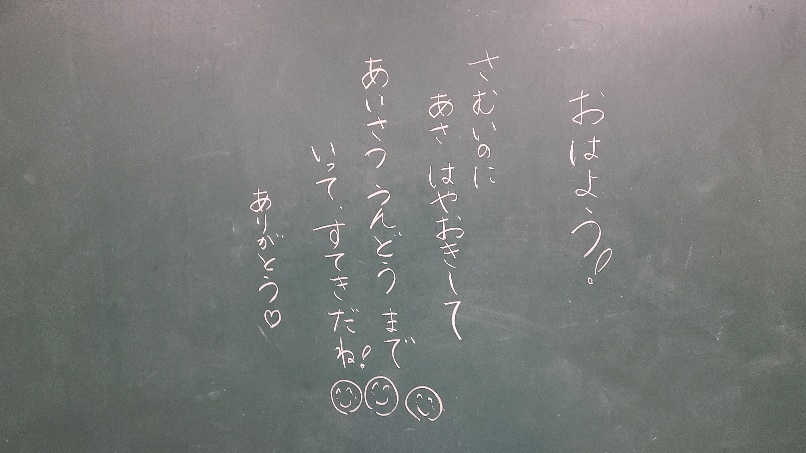 おはよう!
さむいのに
あさ はやおきして
あいさつ うんどう まで
いって、すてきだね!
ありがとう♡